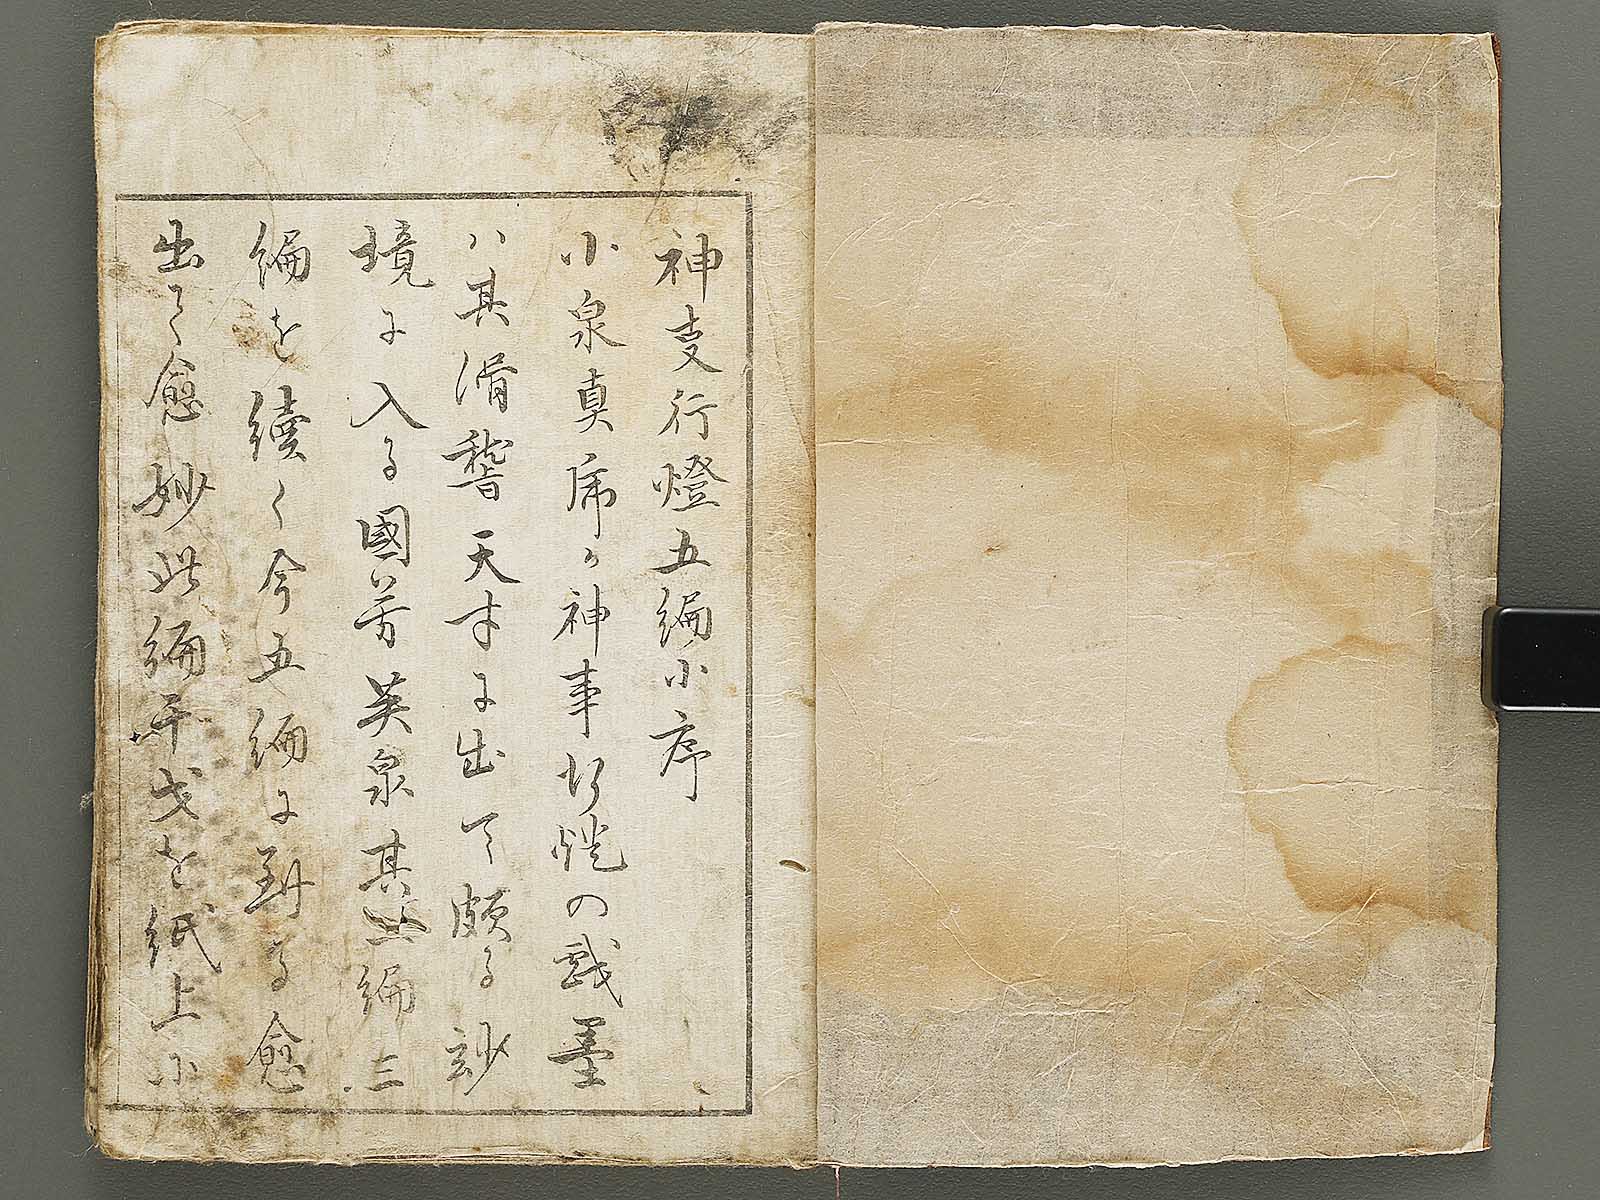 神叓行燈五編小序
小泉真席か神事行燈の戯墨
ハ其滑稽天才に出て頗る玅
境に入る國芳英泉其二編三
編を續く今五編に到る愈
出て愈妙此編干戈を紙上に